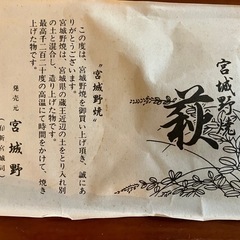 宮城野焼
萩
“宮城野焼”
この度は、宮城野焼を御買い上げ頂き、誠にあ
りがとうございます。
宮城野焼は、宮城県の蔵王近辺の土をとり入れ別
の土と混合し、造り上げた物です。
最高千二百二十度の高温にて時間をかけて、焼き
上げた物です。
発売元 宮城野